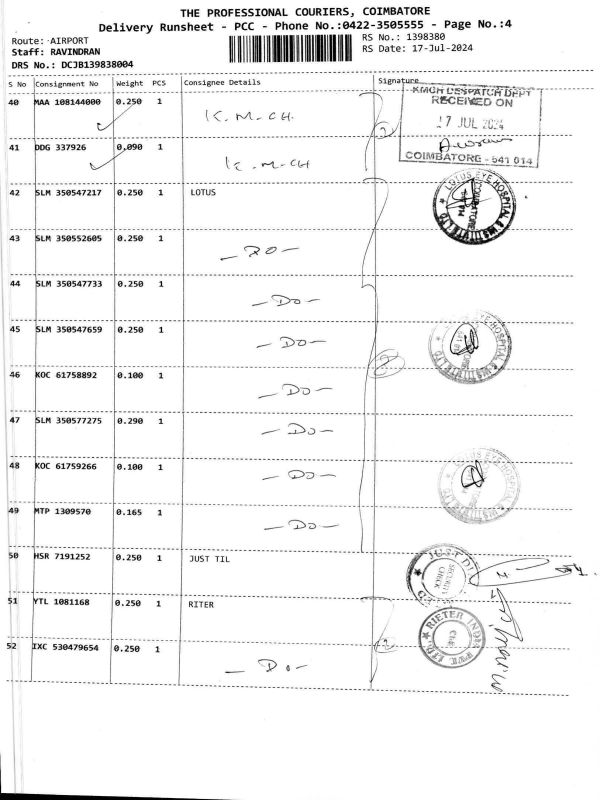 THE PROFESSIONAL COURIERS, COIMBATORE
Delivery Runsheet - PCC - Phone No.:0422-3505555 - Page No.:4
Route: AIRPORT
RS No.: 1398380
Staff: RAVINDRAN
RS Date: 17-Jul-2024
DRS No.: DCJB139838004
S No Consignment No Weight PCS Consignee Details Signature
40 MAA 108144000 0.250 1 K.M.CH.
KMCH DESPATCH DEPT
RECEIVED ON
17 JUL 2024
COIMBATORE - 641 014
41 DDG 337926 0.090 1 K.M.CH
42 SLM 350547217 0.250 1 LOTUS
LOTUS EYE HOSPITAL & INSTITUTE LTD
COIMBATORE
43 SLM 350552605 0.250 1 -DO-
44 SLM 350547733 0.250 1 -DO-
45 SLM 350547659 0.250 1 -DO-
EYE HOSPITAL & INSTITUTE LTD
46 KOC 61758892 0.100 1 -DO-
47 SLM 350577275 0.290 1 -DO-
48 KOC 61759266 0.100 1 -DO-
LOTUS EYE HOSPITAL & INSTITUTE LTD
49 MTP 1309570 0.165 1 -DO-
50 HSR 7191252 0.250 1 JUST TIL
JUST DI
SECURITY
CHECK
51 YTL 1081168 0.250 1 RITER
RIETER INDIA PVT. LTD.
52 IXC 530479654 0.250 1 -DO-